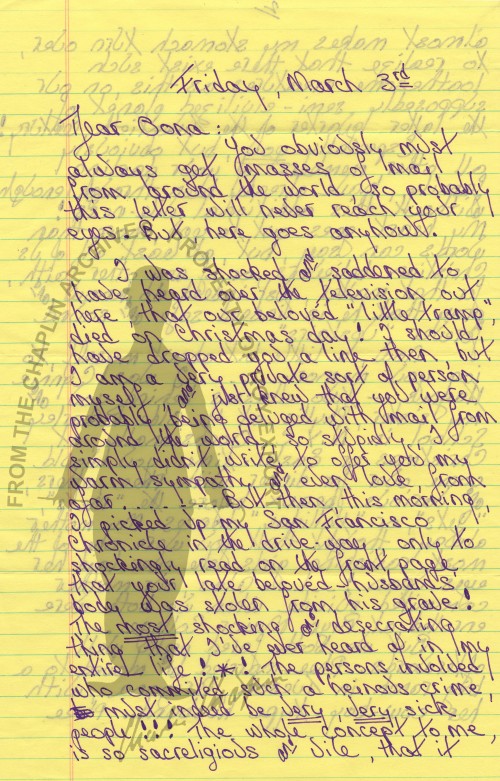 Friday, March 3rd
Dear Oona:
You obviously must
always get masses of mail
from around the world, so probably
this letter will never reach your
eyes. But, here goes anyhow!
I was shocked and saddened to
have heard over the television out
here, that our beloved "little tramp",
died on Christmas day! I should
have dropped you a line then, but
I am a very private sort of person
myself, and just knew that you were
probably being deluged with mail from
around the world, so stupidly, I
simply didn't write to get you my
warm sympathy and even love, from
afar. But then this morning,
I picked up my "San Francisco
Chronicle" in the drive-way, only to
shockingly read on the front page
that your late beloved husband's
body was stolen from his grave!
The most shocking and desecrating
thing that I've ever heard of in my
entire life!*! The persons involved
who commited such a heinous crime,
must indeed be very, very sick
people!!! The whole concept to me,
is so sacreligious and vile, that it
FROM THE CHAPLIN ARCHIVES